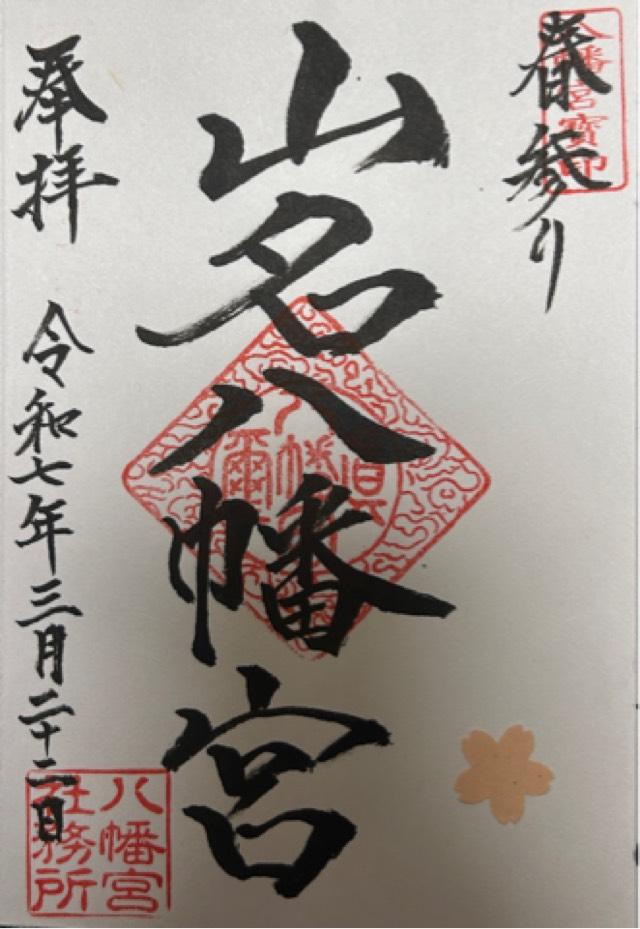 春参り
八幡宮寳印
山名八幡宮
奉拝
令和七年三月二十二日
八幡宮
社務所